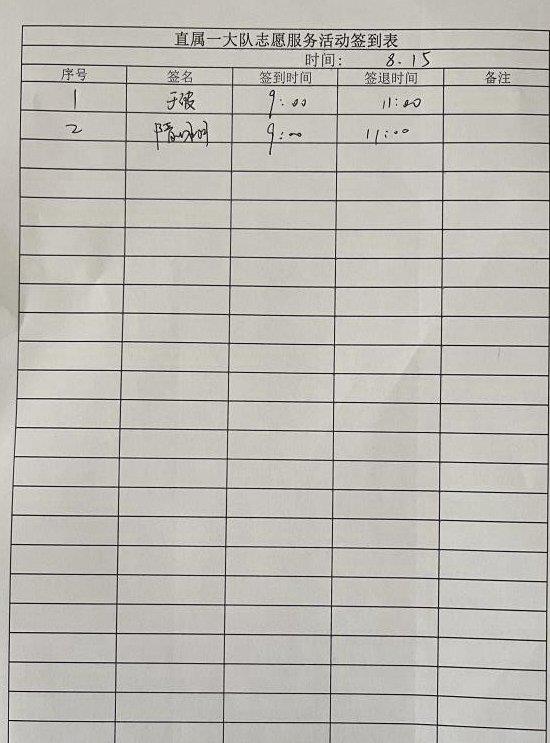 直属一大队志愿服务活动签到表
时间: 8.15
序号 签名 签到时间 签退时间 备注
1 于波 9:00 11:00
2 9:00 11:00